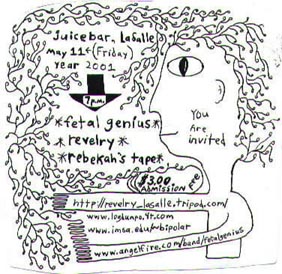 Juicebar, LaSalle
may 11th (Friday)
year 2001
7 p.m.
*fetal genius*
*revelry*
*rebekah's tape*
You
Are
invited
$3.00
ADMISSION FEE
http://revelry_lasalle.tripod.com/
www.angelfire.com/band/fetalgenius